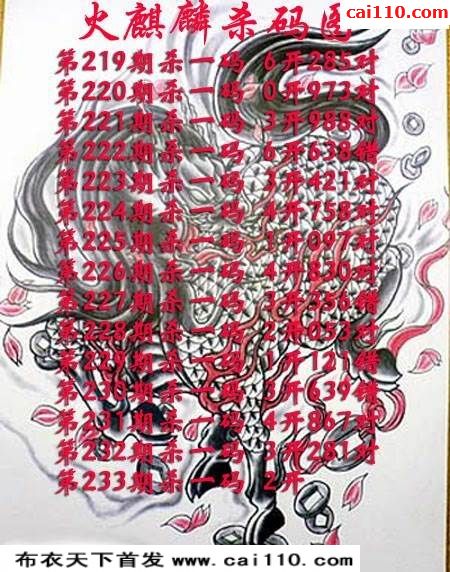 cai110.com
火麒麟杀码图
第219期杀一码 6开285对
第220期杀一码 0开973对
第221期杀一码 3开988对
第222期杀一码 6开638错
第223期杀一码 3开421对
第224期杀一码 4开758对
第225期杀一码 1开097对
第226期杀一码 4开830对
第227期杀一码 3开356错
第228期杀一码 2开053对
第229期杀一码 1开121错
第230期杀一码 3开639错
第231期杀一码 4开867对
第232期杀一码 3开281对
第233期杀一码 2开
布衣天下首发 www.cai110.com